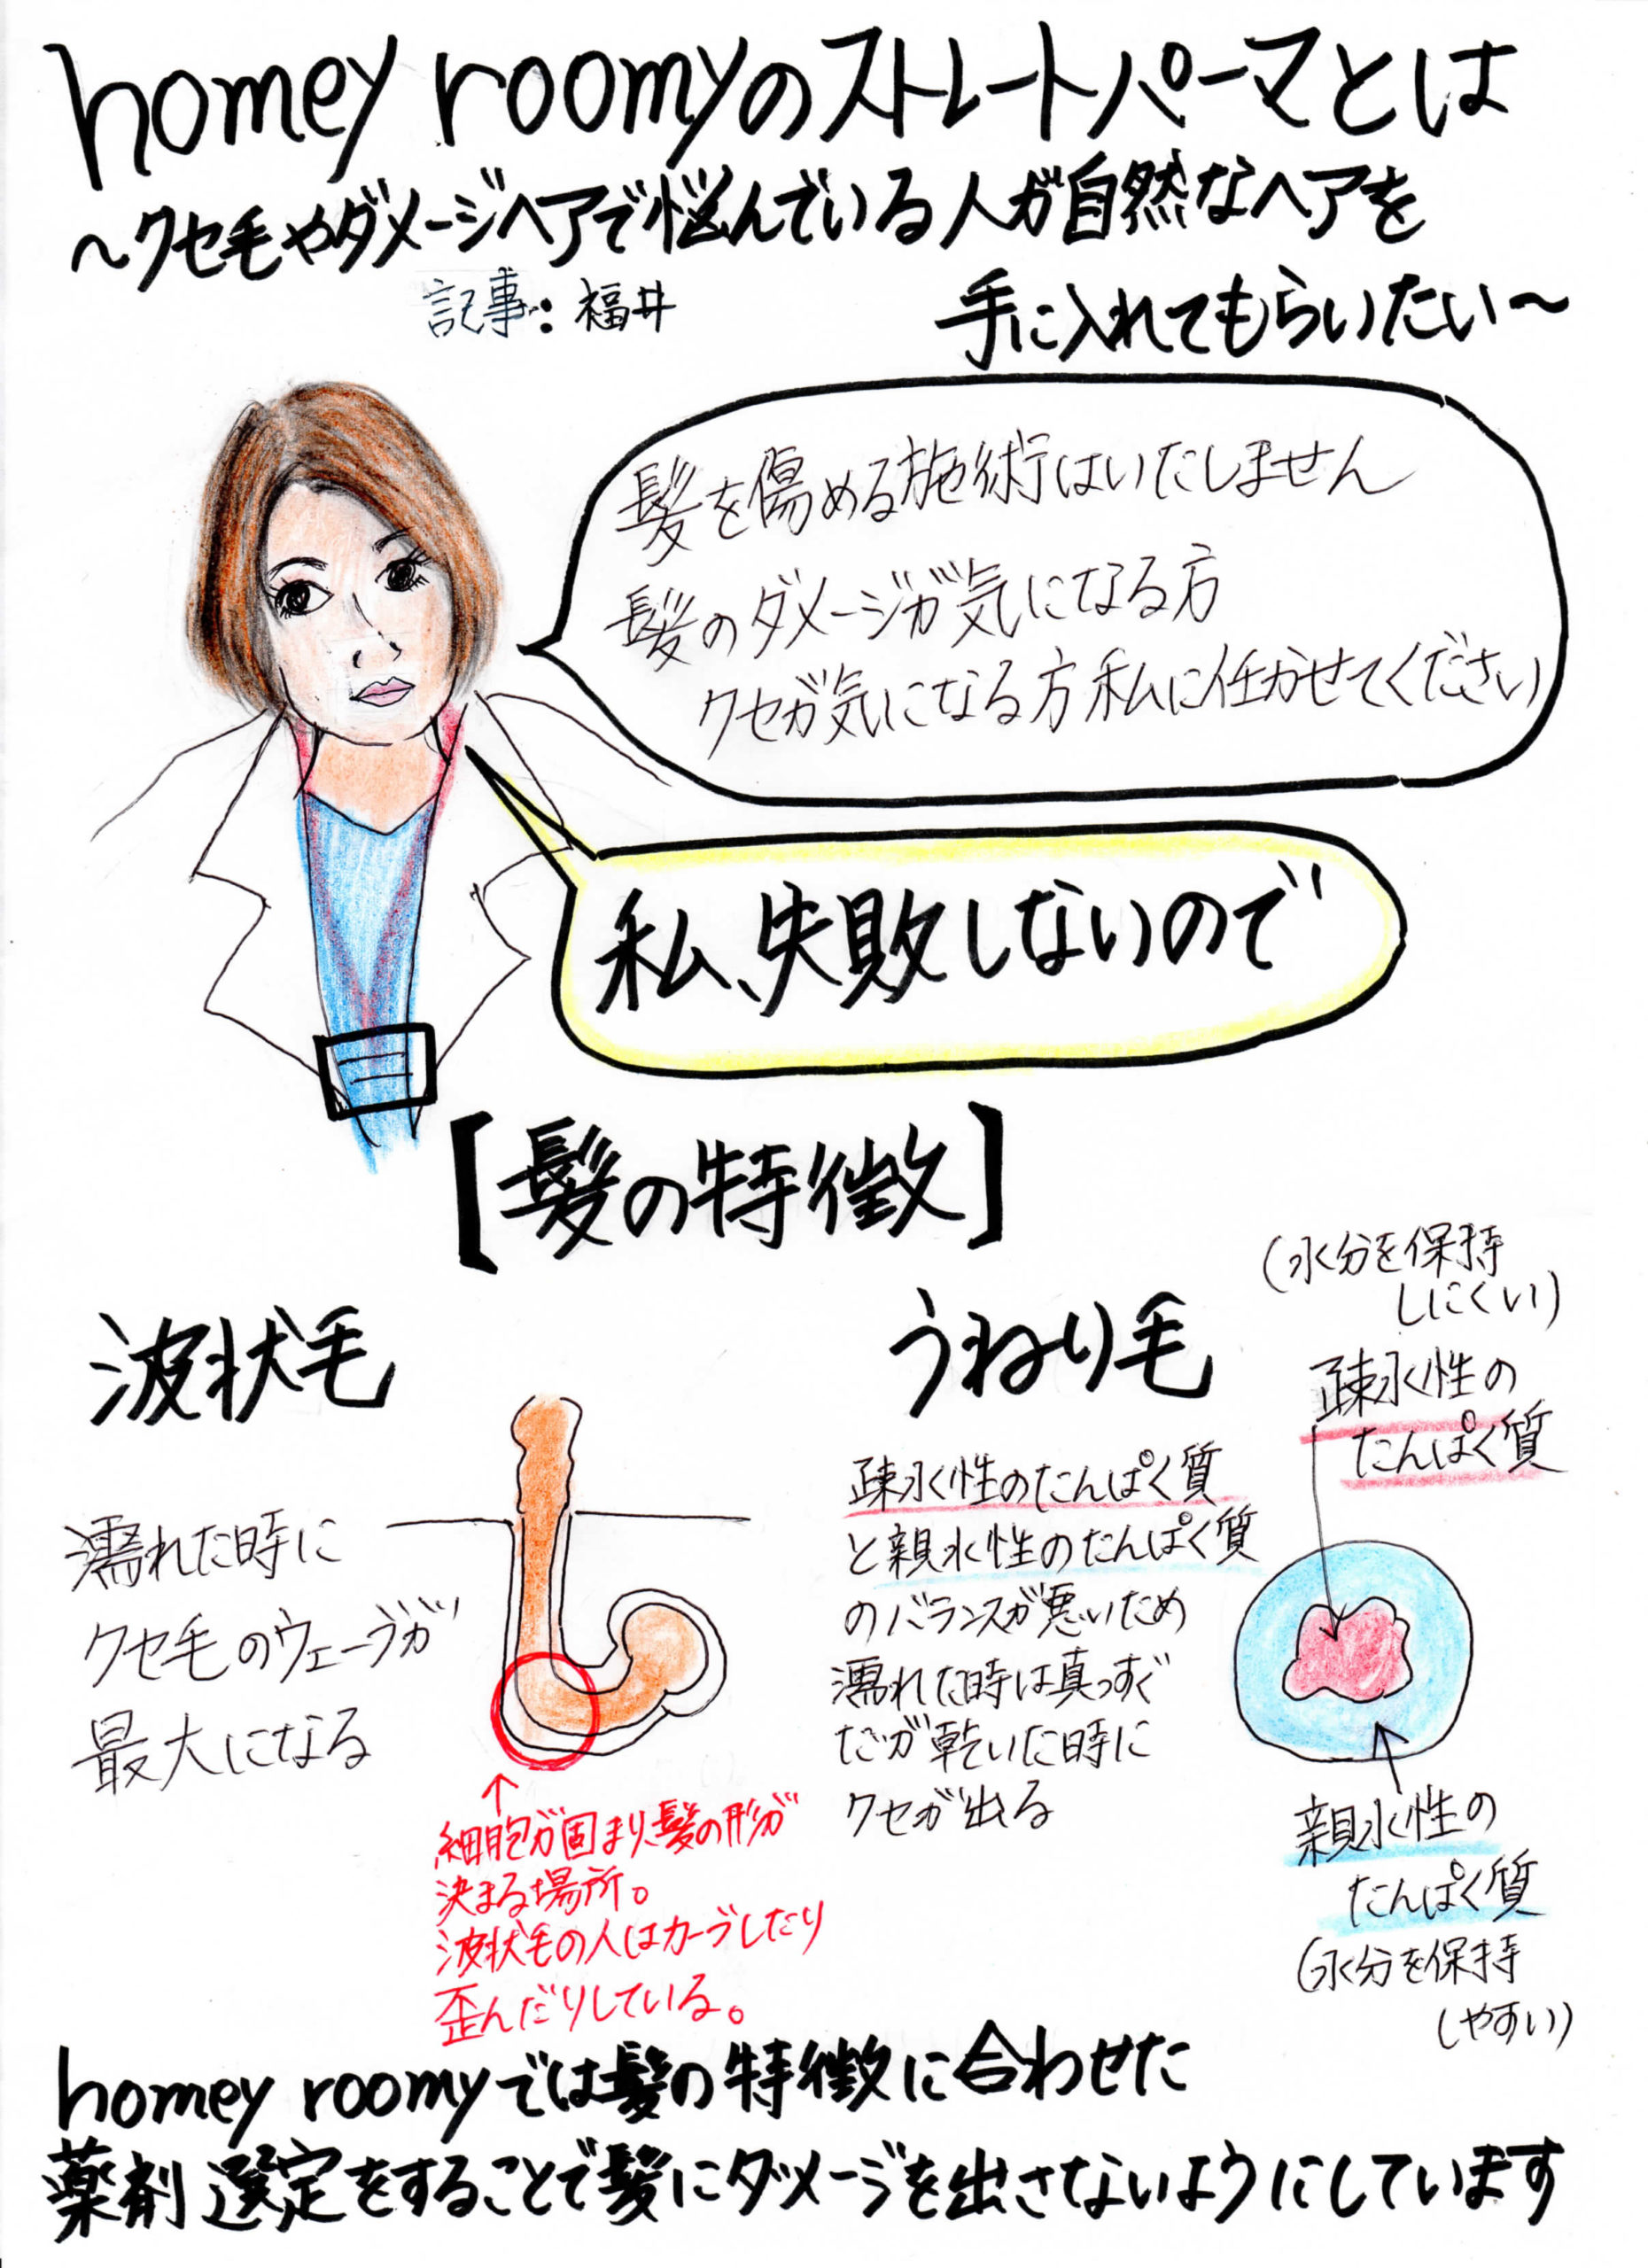 homey roomyのストレートパーマとは
～クセ毛やダメージヘアで悩んでいる人が自然なヘアを
手に入れてもらいたい～
記事:福井
髪を傷める施術はいたしません
髪のダメージが気になる方
クセが気になる方私に任かせてください
私、失敗しないので
【髪の特徴】
波状毛
濡れた時に
クセ毛のウェーブが
最大になる
↑
細胞が固まり、髪の形が
決まる場所。
波状毛の人はカーブしたり
歪んだりしている。
うねり毛
疎水性のたんぱく質
と親水性のたんぱく質
のバランスが悪いため
濡れた時は真っすぐ
だが乾いた時に
クセが出る
(水分を保持
しにくい)
疎水性の
たんぱく質
親水性の
たんぱく質
(水分を保持
しやすい)
homey roomyでは髪の特徴に合わせた
薬剤選定をすることで髪にダメージを出さないようにしています